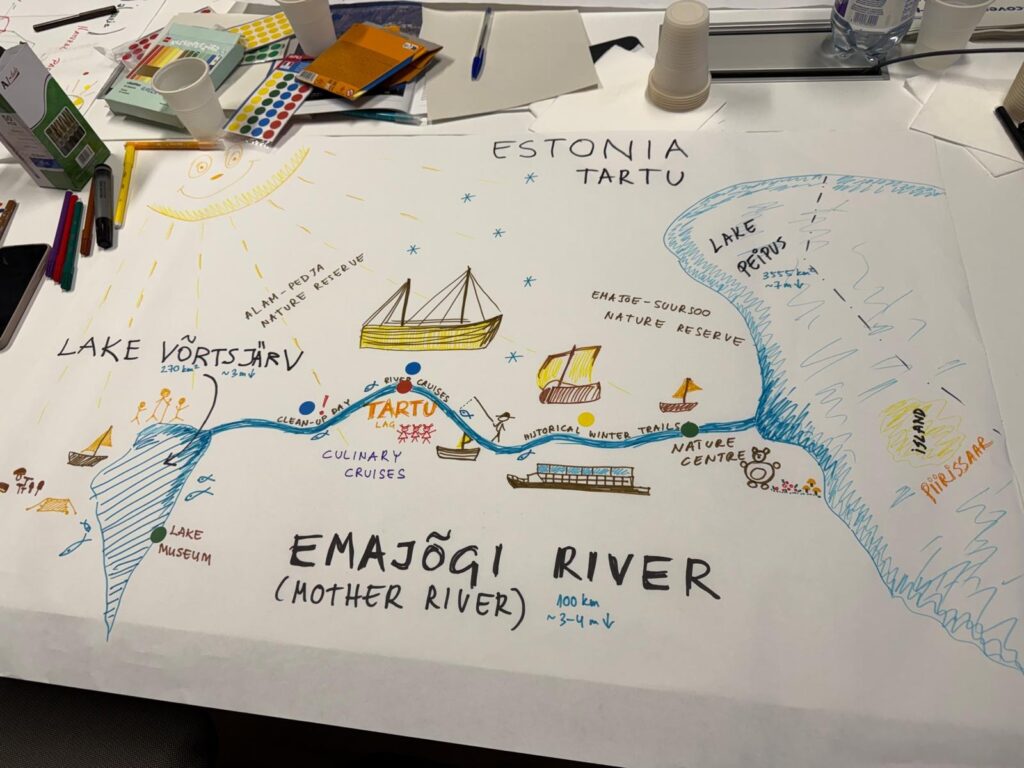 ESTONIA
TARTU
LAKE
PEIPUS
3555 km²
~7m↓
ALAM-PEDJA
NATURE RESERVE
EMAJOE-SUURSOO
NATURE RESERVE
LAKE VÕRTSJÄRV
270 km²
~3m↓
CLEAN-UP DAY
!
RIVER CRUISES
TARTU
LAG
CULINARY
CRUISES
HISTORICAL WINTER TRAILS
NATURE
CENTRE
ISLAND
PIIRISSAAR
LAKE
MUSEUM
EMAJÕGI RIVER
(MOTHER RIVER)
100 km
~3-4m↓